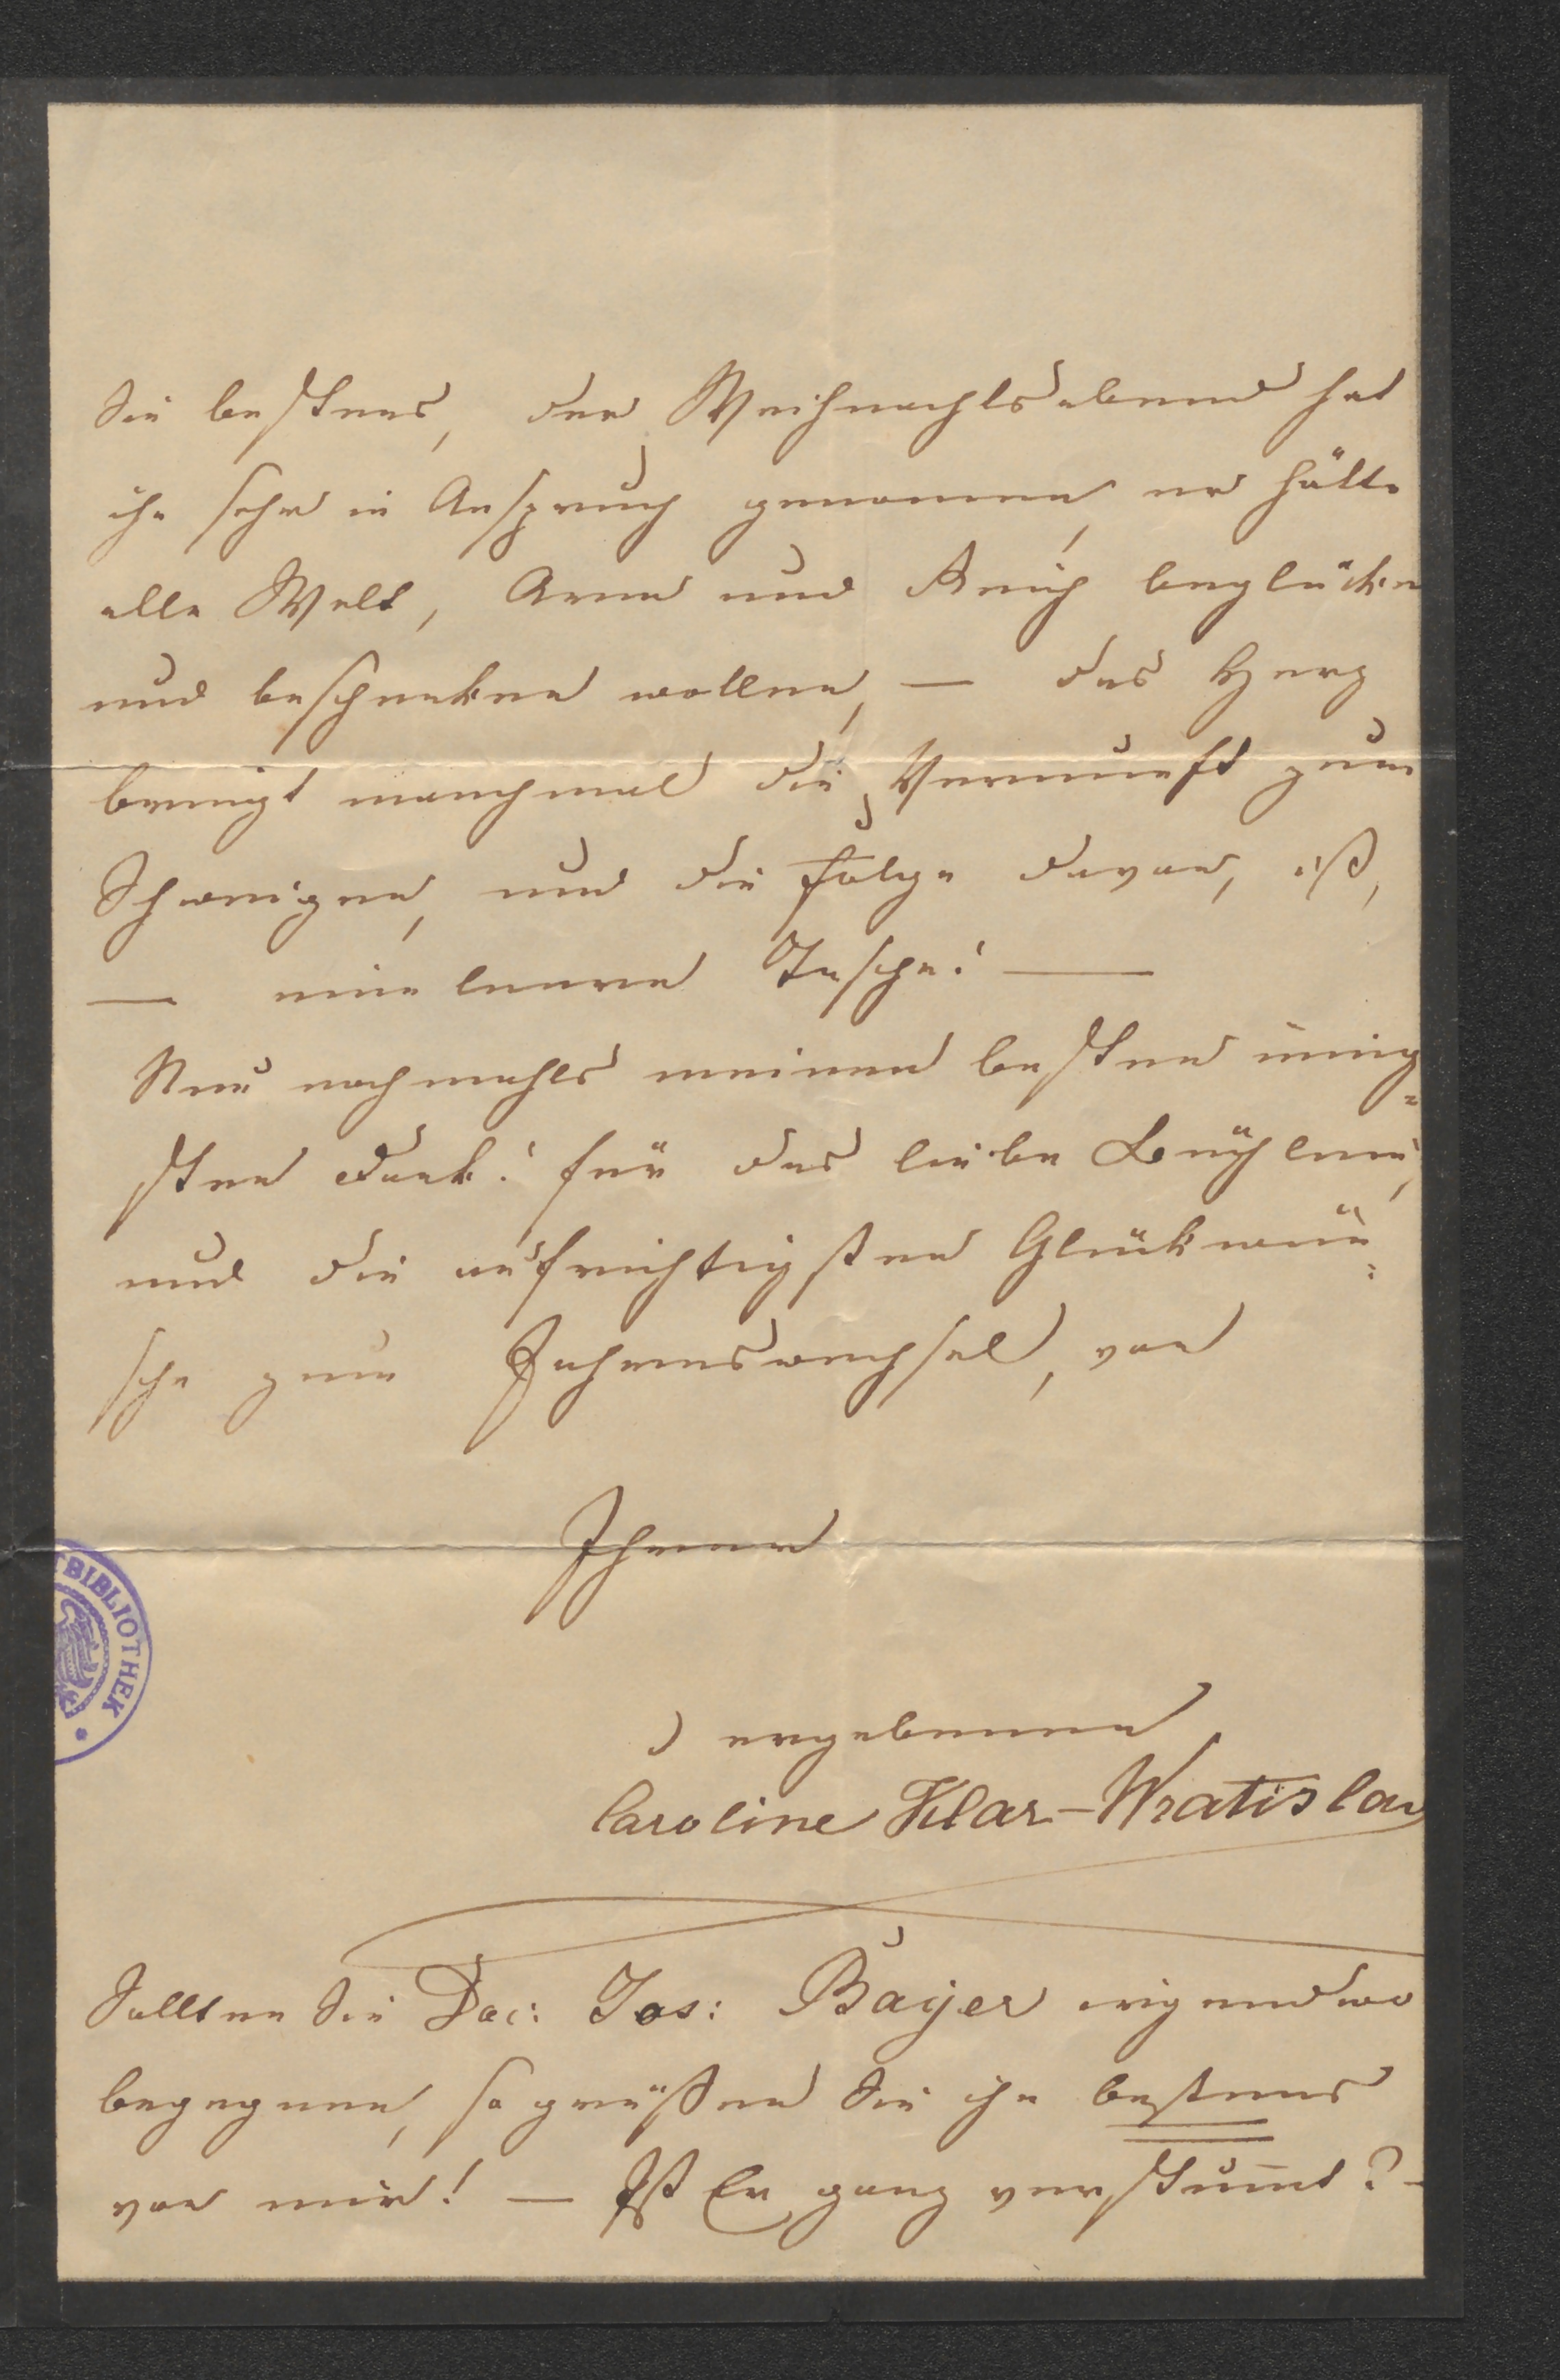 Sie bestens, der Weihnachtsabend hat
ihn sehr in Anspruch genommen, er hätte
alle Welt, Arm und Reich beglücken
und beschenken wollen, — das Herz
bringt manchmal die Vernunft zum
Schweigen, und die Folge davon, ist,
— eine leere Tasche! —
Nun nochmahls meinen besten innig=
sten Dank! für das liebe Büchlein,
und die aufrichtigsten Glückwün=
sche zum Jahreswechsel, von
Ihrer
ergebenen
Caroline Klar-Wratislav
Sollten Sie Doc: Jos: Bayer irgendwo
begegnen, so grüßen Sie ihn bestens
von mir! — Ist Er ganz verstum̅t? —
BIBLIOTHEK